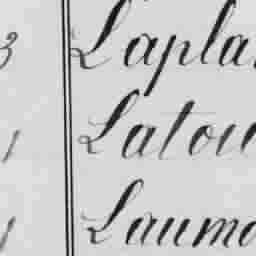 3 Lapla
1 Latou
1 Lauma